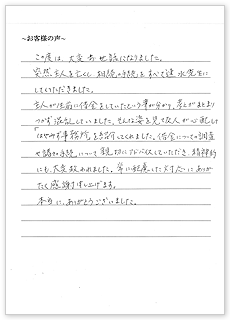 ~お客様の声~
この度は、大変お世話になりました。
突然主人を亡くし、相続の手続きをすべて速水先生に
していただきました。
主人が生前に借金をしていたという事が分かり、考えがまとまり
つかず混乱していました。そんな姿を見て友人が心配して
「はやみず事務所」を紹介してくれました。借金についての調査
や諸々の手続について親切にアドバイスしていただき、精神的
にも大変救われました。常に配慮した対応にありが
たく感謝申し上げます。
本当に、ありがとうございました。